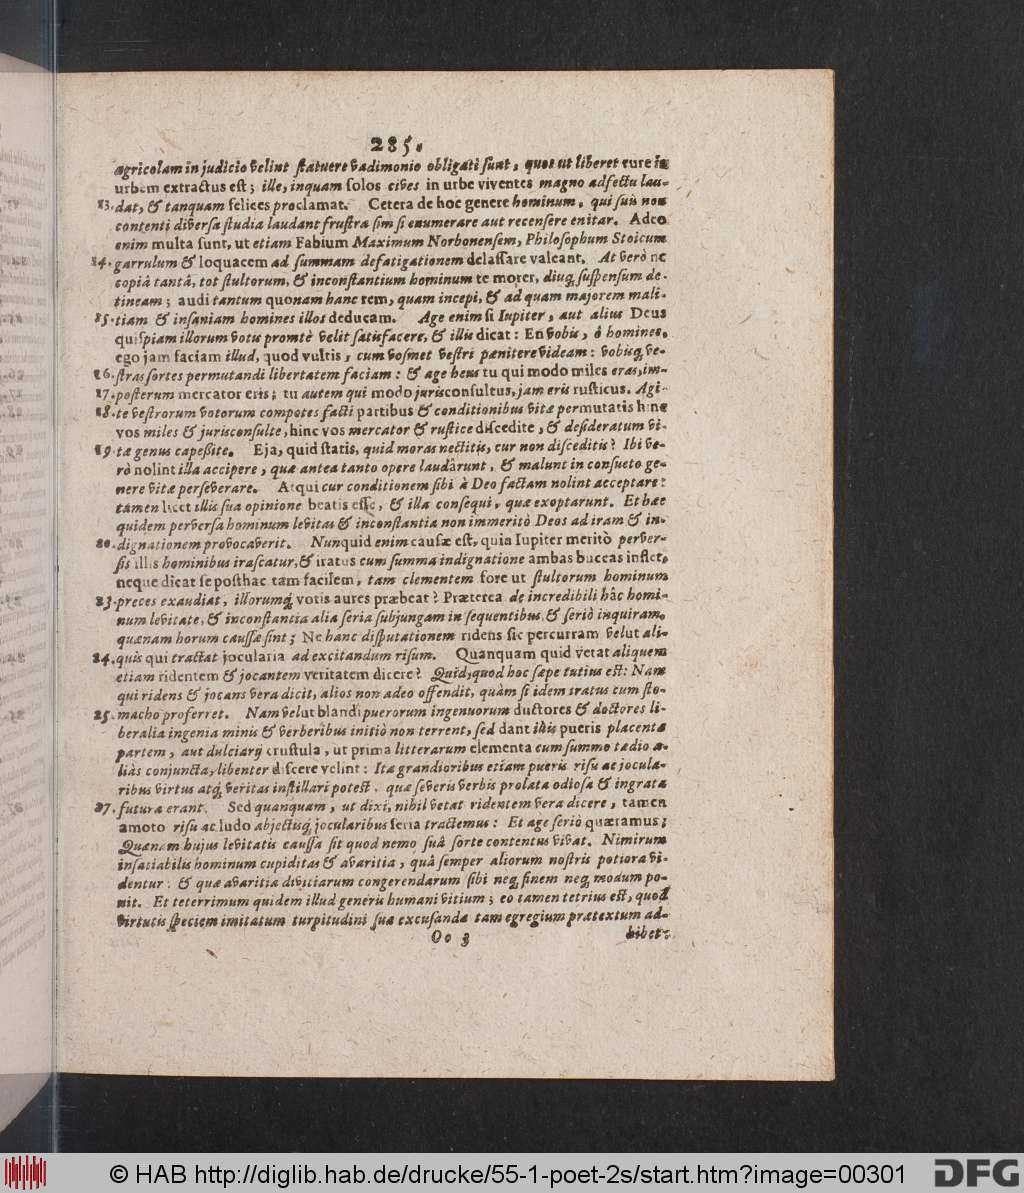 285.
agricolam in judicio velint statuere vadimonio obligati sunt, quos ut liberet rure in
urbem extractus est; ille, inquam solos cives in urbe viventes magno adfectu lau-
13. dat, & tanquam felices proclamat. Cetera de hoc genere hominum, qui suis non
contenti diversa studia laudant frustra sim si enumerare aut recensere enitar. Adeo
enim multa sunt, ut etiam Fabium Maximum Norbonensem, Philosophum Stoicum
14. garrulum & loquacem ad summam defatigationem delassare valeant. At verò ne
copiâ tantâ, tot stultorum, & inconstantium hominum te morer, diuq; suspensum de-
tineam; audi tantum quonam hanc rem, quam incepi, & ad quam majorem mali-
15. tiam & insaniam homines illos deducam. Age enim si Iupiter, aut alius Deus
quispiam illorum votis promtè velit satisfacere, & illis dicat: En vobis, ô homines,
ego jam faciam illud, quod vultis, cum vosmet vestri pœnitere videam: vobisq; ve-
16. stras sortes permutandi libertatem faciam: & age heus tu qui modo miles eras, im-
17. posterum mercator eris; tu autem qui modo jurisconsultus, jam eris rusticus. Agi-
18. te vestrorum votorum compotes facti partibus & conditionibus vitæ permutatis hinc
vos miles & jurisconsulte, hinc vos mercator & rustice discedite, & desideratum vi-
19. tæ genus capeßite. Eja, quid statis, quid moras nectitis, cur non disceditis? Ibi ve-
rò nolint illa accipere, quæ antea tanto opere laudârunt, & malunt in consueto ge-
nere vitæ perseverare. Atqui cur conditionem sibi à Deo factam nolint acceptare?
tamen licet illis sua opinione beatis esse, & illa consequi, quæ exoptarunt. Et hæc
quidem perversa hominum levitas & inconstantia non immeritò Deos ad iram & in-
20. dignationem provocaverit. Nunquid enim causæ est, quia Iupiter meritò perver-
sis illis hominibus irascatur, & iratus cum summa indignatione ambas buccas inflet,
neque dicat se posthac tam facilem, tam clementem fore ut stultorum hominum
23. preces exaudiat, illorumq; votis aures præbeat? Præterea de incredibili hâc homi-
num levitate, & inconstantia alia seria subjungam in sequentibus, & seriò inquiram,
quænam horum caussæ sint; Ne hanc disputationem ridens sic percurram velut ali-
24. quis qui tractat jocularia ad excitandum risum. Quanquam quid vetat aliquem
etiam ridentem & jocantem veritatem dicere? Quid, quod hoc sæpe tutius est: Nam
qui ridens & jocans vera dicit, alios non adeo offendit, quàm si idem iratus cum sto-
25. macho proferret. Nam velut blandi puerorum ingenuorum ductores & doctores li-
beralia ingenia minis & verberibus initiò non terrent, sed dant illis pueris placentæ
partem, aut dulciarij crustula, ut prima litterarum elementa cum summo tædio a-
liàs conjuncta, libenter discere velint: Ita grandioribus etiam pueris risu ac jocula-
ribus virtus atq; veritas instillari potest, quæ severis verbis prolata odiosa & ingrata
27. futura erant. Sed quanquam, ut dixi, nihil vetat ridentem vera dicere, tamen
amoto risu ac ludo abjectisq; jocularibus seria tractemus: Et age seriò quæramus;
Quænam hujus levitatis caussa sit quod nemo suâ sorte contentus vivat. Nimirum
insatiabilis hominum cupiditas & avaritia, quâ semper aliorum nostris potiora vi-
dentur: & quæ avaritia divitiarum congerendarum sibi neq; finem neq; modum po-
nit. Et teterrimum quidem illud generis humani vitium; eo tamen tetrius est, quod
virtutis speciem imitatum turpitudini suæ excusandæ tam egregium prætextum ad-
Oo 3 hibet:
© HAB http://diglib.hab.de/drucke/55-1-poet-2s/start.htm?image=00301
DFG